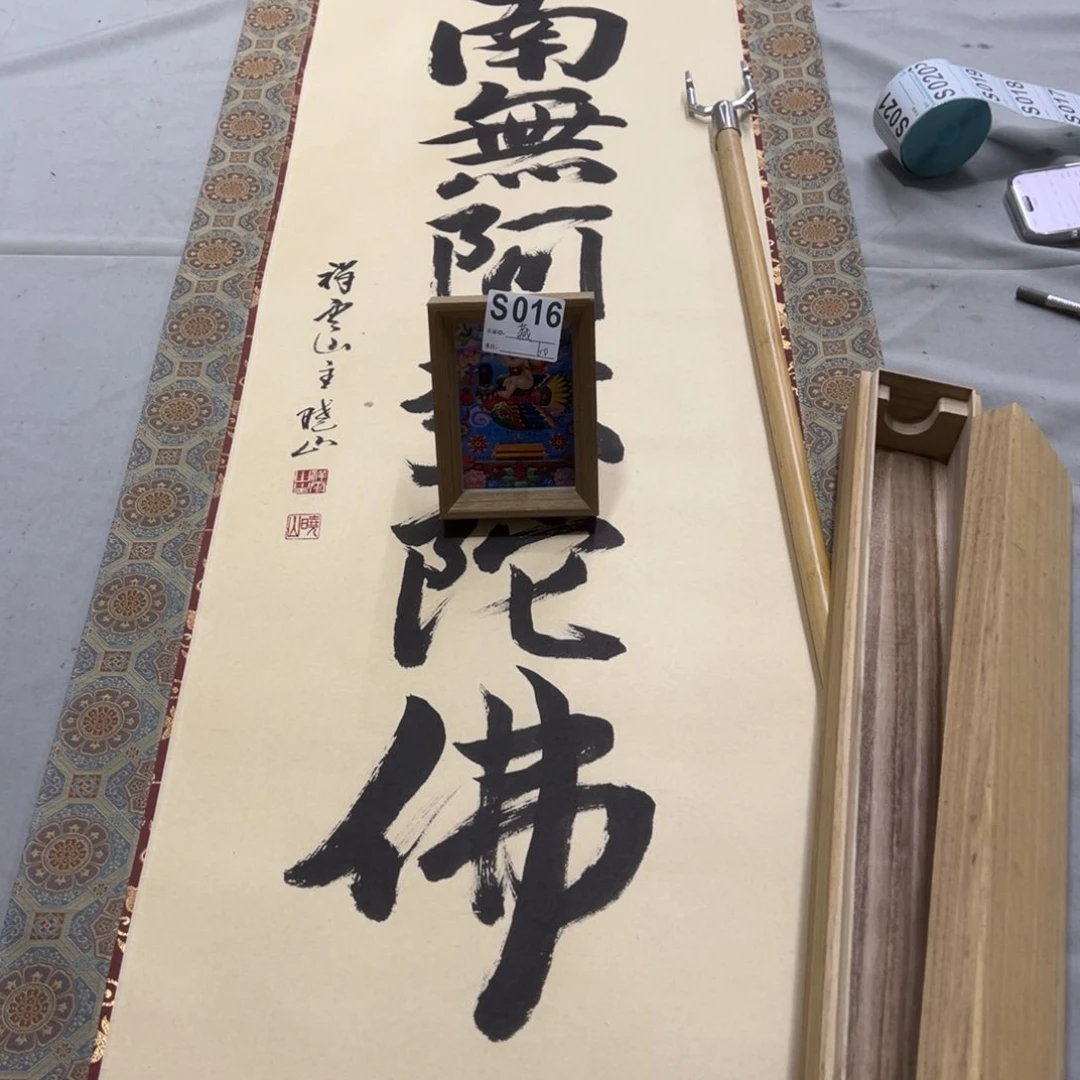 南無阿陀佛
祥雲山主曉山
曉山
S016
60
S021
S020
S019
S018
S017